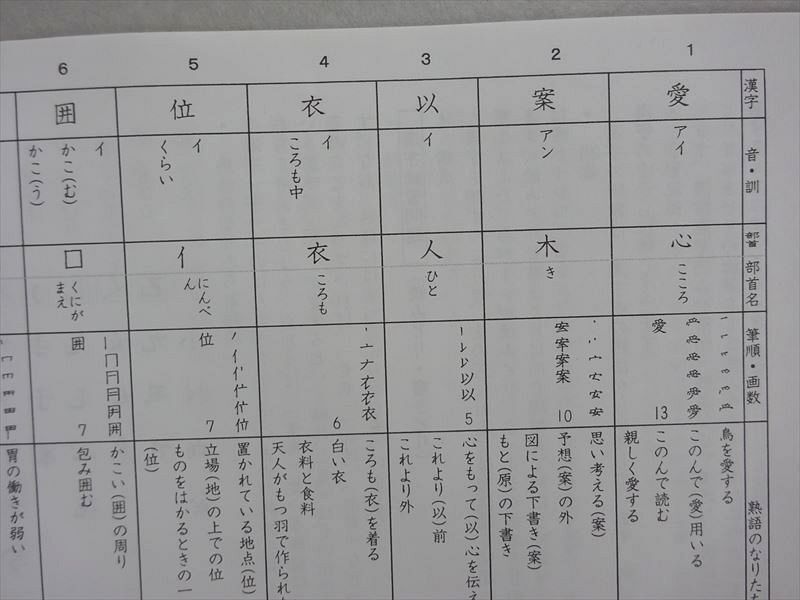 漢字
音・訓
部首
部首名
筆順・画数
熟語のなりた
1
愛
アイ
心
こころ
愛
13
鳥を愛する
このんで(愛)用いる
このんで読む
親しく愛する
2
案
アン
木
き
安安宰宰案案
10
思い考える(案)
予想(案)の外
図による下書き(案)
もと(原)の下書き
3
以
イ
人
ひと
以以
5
心をもって(以)心を伝え
これより(以)前
これより外
4
衣
イ
ころも中
衣
ころも
衣衣
6
ころも(衣)を着る
白い衣
衣料と食料
天人がもつ羽で作られ
5
位
イ
くらい
亻
にんべ
ん
位位
7
置かれている地点(位)
立場(地)の上での位
ものをはかるときの一
(位)
6
囲
イ
かこ(む)
かこ(う)
囗
くにが
まえ
囲
囲
7
かこい(囲)の周り
包み囲む
胃の働きが弱い